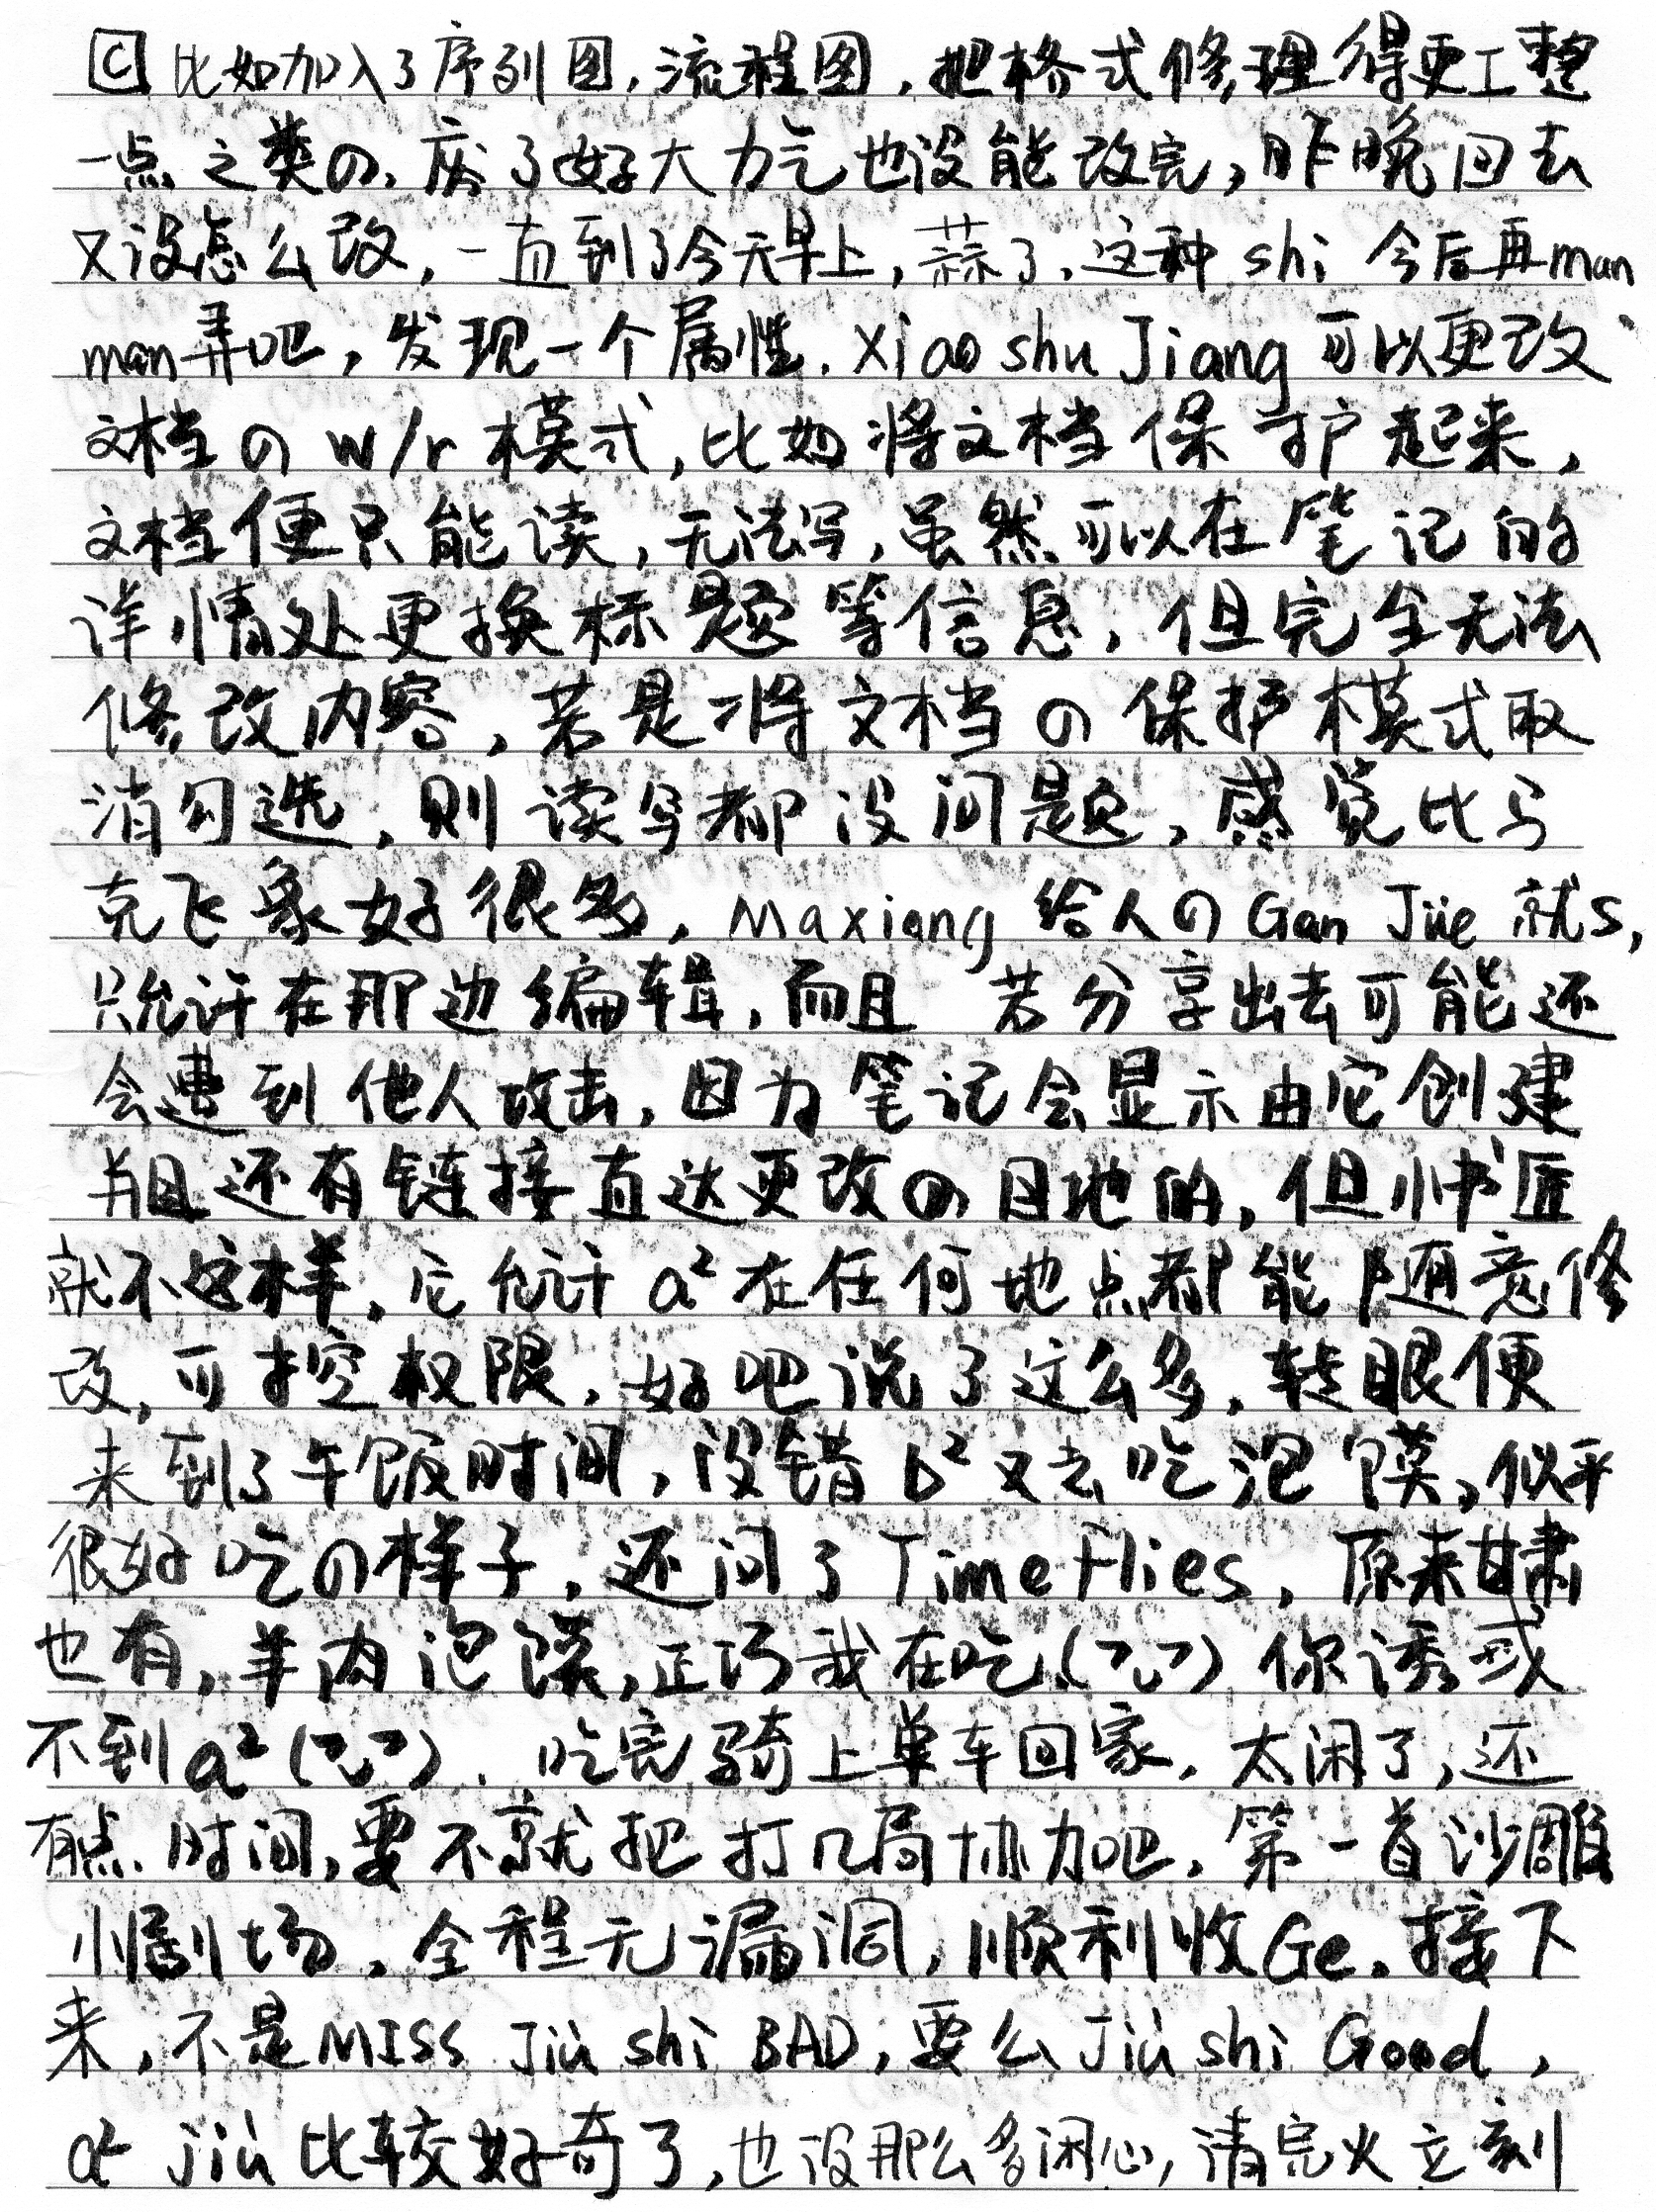 C 比如加入了序列图，流程图，把格式修理得更工整
一点之类の，废了好大力气也没能改完，昨晚回去
又没怎么改，一直到了今天早上，蒜了，这种 shi 今后再man
man弄吧，发现一个属性，Xiao shu Jiang 可以更改
文档の w/r 模式，比如将文档保护起来，
文档便只能读，无法写，虽然可以在笔记的
详情处更换标题等信息，但完全无法
修改内容，若是将文档の保护模式取
消勾选，则读写都没问题，感觉比马
克飞象好很多，Maxiang 给人の Gan Jüe 就s，
只允许在那边编辑，而且 若分享出去可能还
会遭到他人攻击，因为笔记会显示由它创建
并且还有链接直达更改の目地的，但小书匠
就不这样，它允许 a² 在任何地点都能随意修
改，可控权限，好吧说了这么多，转眼便
来到了午饭时间，没错 b² 又去吃泡馍，似乎
很好吃の样子，还问了 Time Flies，原来甘肃
也有，羊肉泡馍，正巧我在吃，你诱惑
不到 a²，吃完骑上单车回家，太闲了，还
有点时间，要不就把打几局协力吧，第一首沙雕
小剧场，全程无漏洞，顺利收Ge。接下
来，不是MISS Jiù shi BAD，要么 Jiù shi Good，
a² jiù 比较好奇了，也没那么多闲心，清完火立刻